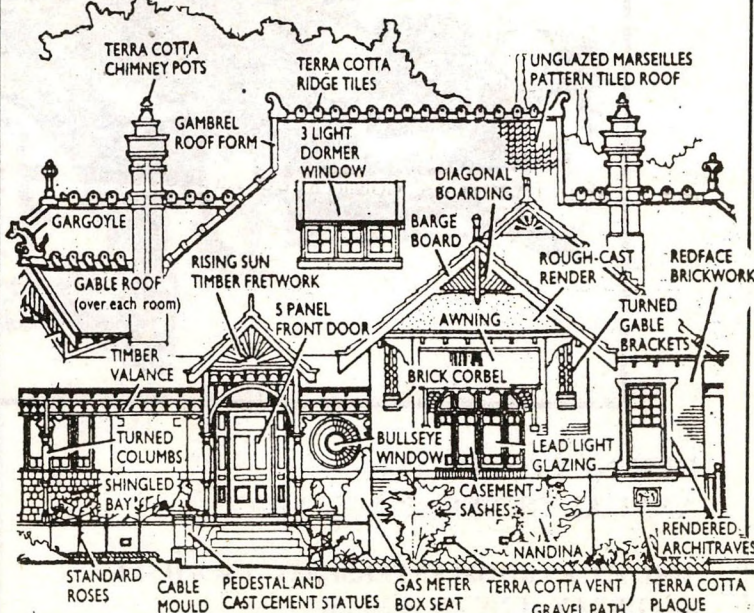 TERRA COTTA
CHIMNEY POTS
TERRA COTTA
RIDGE TILES
UNGLAZED MARSEILLES
PATTERN TILED ROOF
GAMBREL
ROOF FORM
3 LIGHT
DORMER
WINDOW
DIAGONAL
BOARDING
GARGOYLE
BARGE
BOARD
ROUGH-CAST
RENDER
REDFACE
BRICKWORK
GABLE ROOF
(over each room)
RISING SUN
TIMBER FRETWORK
5 PANEL
FRONT DOOR
AWNING
TURNED
GABLE
BRACKETS
TIMBER
VALANCE
BRICK CORBEL
TURNED
COLUMBS
BULLSEYE
WINDOW
LEAD LIGHT
GLAZING
SHINGLED
BAY
CASEMENT
SASHES
NANDINA
RENDERED
ARCHITRAVES
STANDARD
ROSES
CABLE
MOULD
PEDESTAL AND
CAST CEMENT STATUES
GAS METER
BOX SEAT
TERRA COTTA VENT
GRAVEL PATH
TERRA COTTA
PLAQUE